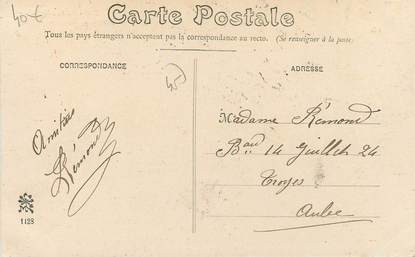 40€
Carte Postale
Tous les pays étrangers n'acceptent pas la correspondance au recto. (Se renseigner à la poste)
CORRESPONDANCE
45
ADRESSE
Amitiés
Rémond
Madame Rémond
Bard 14 Juillet 24
Troyes
Aube
1128